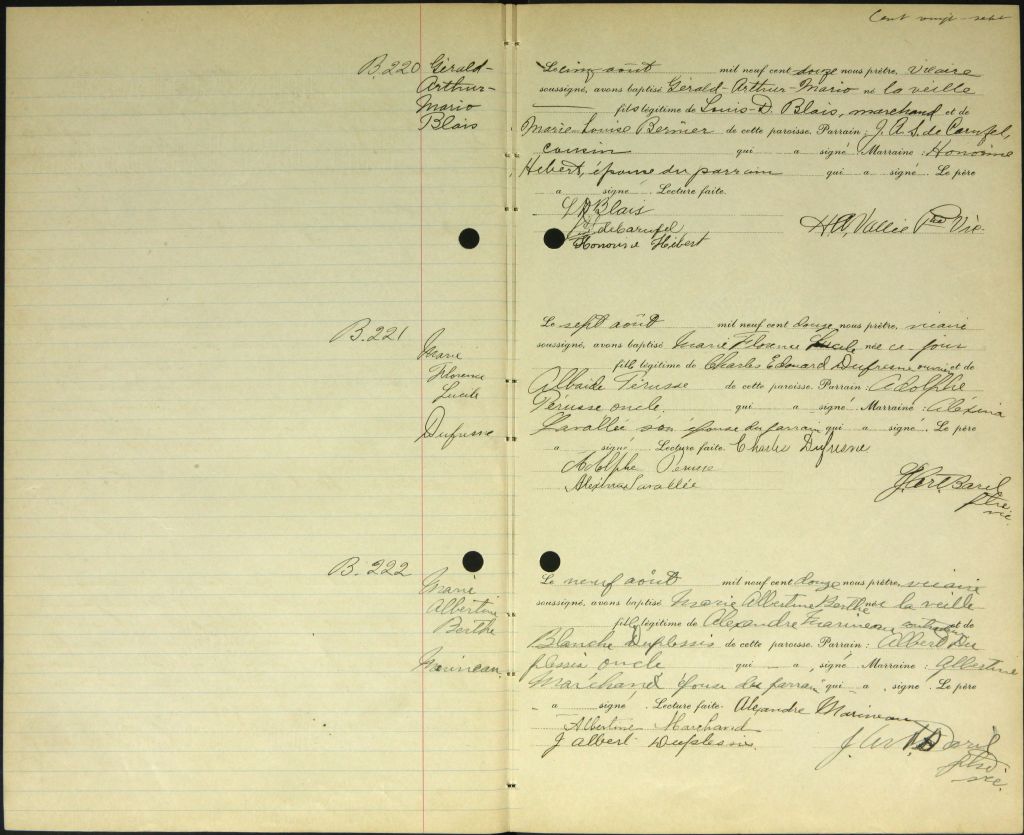 Cent vingt-sept
B.220 Gérald-
Arthur-
Mario
Blais
Le cinq août mil neuf cent douze nous prêtre, vicaire
soussigné, avons baptisé Gérald-Arthur-Mario né la veille
fils légitime de Louis-D. Blais, marchand et de
Marie-Louise Bernier de cette paroisse. Parrain: J. A. S. de Carufel,
cousin qui a signé. Marraine: Honorine
Hébert, épouse du parrain qui a signé. Le père
a signé. Lecture faite.
L D Blais
de Carufel
Honorine Hébert
H A, Vallée Ptre Vic.
B. 221
Marie
Florence
Lucile
Dufresne
Le sept août mil neuf cent douze, nous prêtre, vicaire
soussigné, avons baptisé Marie Florence Lucile née ce jour
fille légitime de Charles Edouard Dufresne ouvrier et de
Albaide Pérusse de cette paroisse. Parrain: Adolphe
Pérusse oncle. qui a signé. Marraine: Aléxina
Lavallée son épouse du parrain qui a signé. Le père
a signé. Lecture faite. Charles Dufresne
Adolphe Perusse
Aléxina Lavallée
J. Art. Baril
ptre
vic.
B. 222
Marie
Albertine
Berthe
Marineau
Le neuf août mil neuf cent douze nous prêtre, vicaire
soussigné, avons baptisé Marie Albertine Berthe née la veille
fille légitime de Alexandre Marineau et de
Blanche Duplessis de cette paroisse. Parrain: Albert Du
plessis oncle qui a signé. Marraine: Albertine
Marchand épouse du parrain qui a signé. Le père
a signé. Lecture faite. Alexandre Marineau
Albertine Marchand
J albert Duplessis.
J. Art. Baril
ptre
vic.